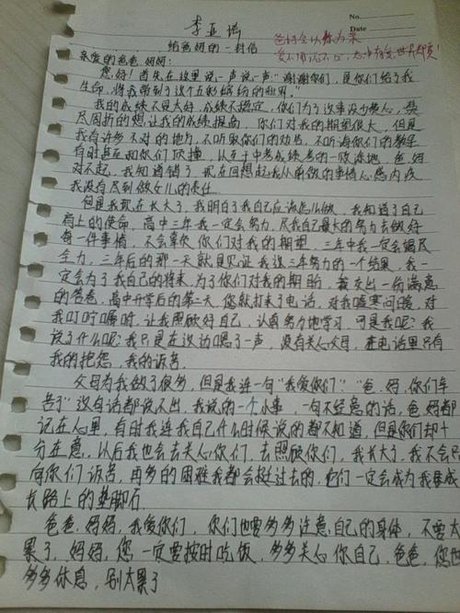 李亚诺
No.
Date
爸妈会以你为荣
给爸妈的一封信
亲爱的爸爸,妈妈:
您好!首先在这里说一声说一声"谢谢你们,是你们给了我
生命,将我带到了这个五彩缤纷的世界。"
我的成绩不是太好,成绩不稳定,你们为了这事没少费心,想
尽周折的想让我的成绩提高,你们对我的期望很大,但是
我有许多不对的地方,不听取你们的劝告,不听过你们的教导
有时甚至和你们顶撞,以至于中考成绩考的一败涂地,爸妈
对不起,我知道错了,现在回想起我从前做的事情心感内疚
我没有尽到做女儿的责任。
但是我现在长大了,我明白了我自己应该怎么做,我知道了自己
肩上的使命,高中三年我一定会努力,尽我自己最大的努力去做好
每一件事情,不会辜负你们对我的期望,三年中我一定会竭尽
全力,三年后的那一天就是见证我这三年努力的一个结果,我一
定会为了我自己的将来,为了你们对我的期盼,最交出一份满意
的答卷,高中开学后的第一天,您就打来了电话,对我嘘寒问暖,对
我叮咛嘱咐,让我照顾好自己,认真努力地学习,可是我呢?我
说了什么呢?我只是在这边嗯了一声,没有关心父母,在电话里只有
我的抱怨,我的诉苦。
父母为我做了很多,但是我连一句"我爱你们""爸,妈,你们辛
苦了"这句话都说不出,我说的一个小事,一句不经意的话,爸妈都
记在心里,有时我连我自己什么时候说的都不知道,但是你们却十
分在意,从后我也会去关心你们,去照顾你们,我长大了,我不会只
向你们诉苦,再多的困难我都会挺过去的,它们一定会成为我要成
长路上的垫脚石
爸爸,妈妈,我爱你们,你们也要多多注意自己的身体,不要太
累了,妈妈,您一定要按时吃饭,多多关心你自己,爸爸,您也
多多休息,别太累了